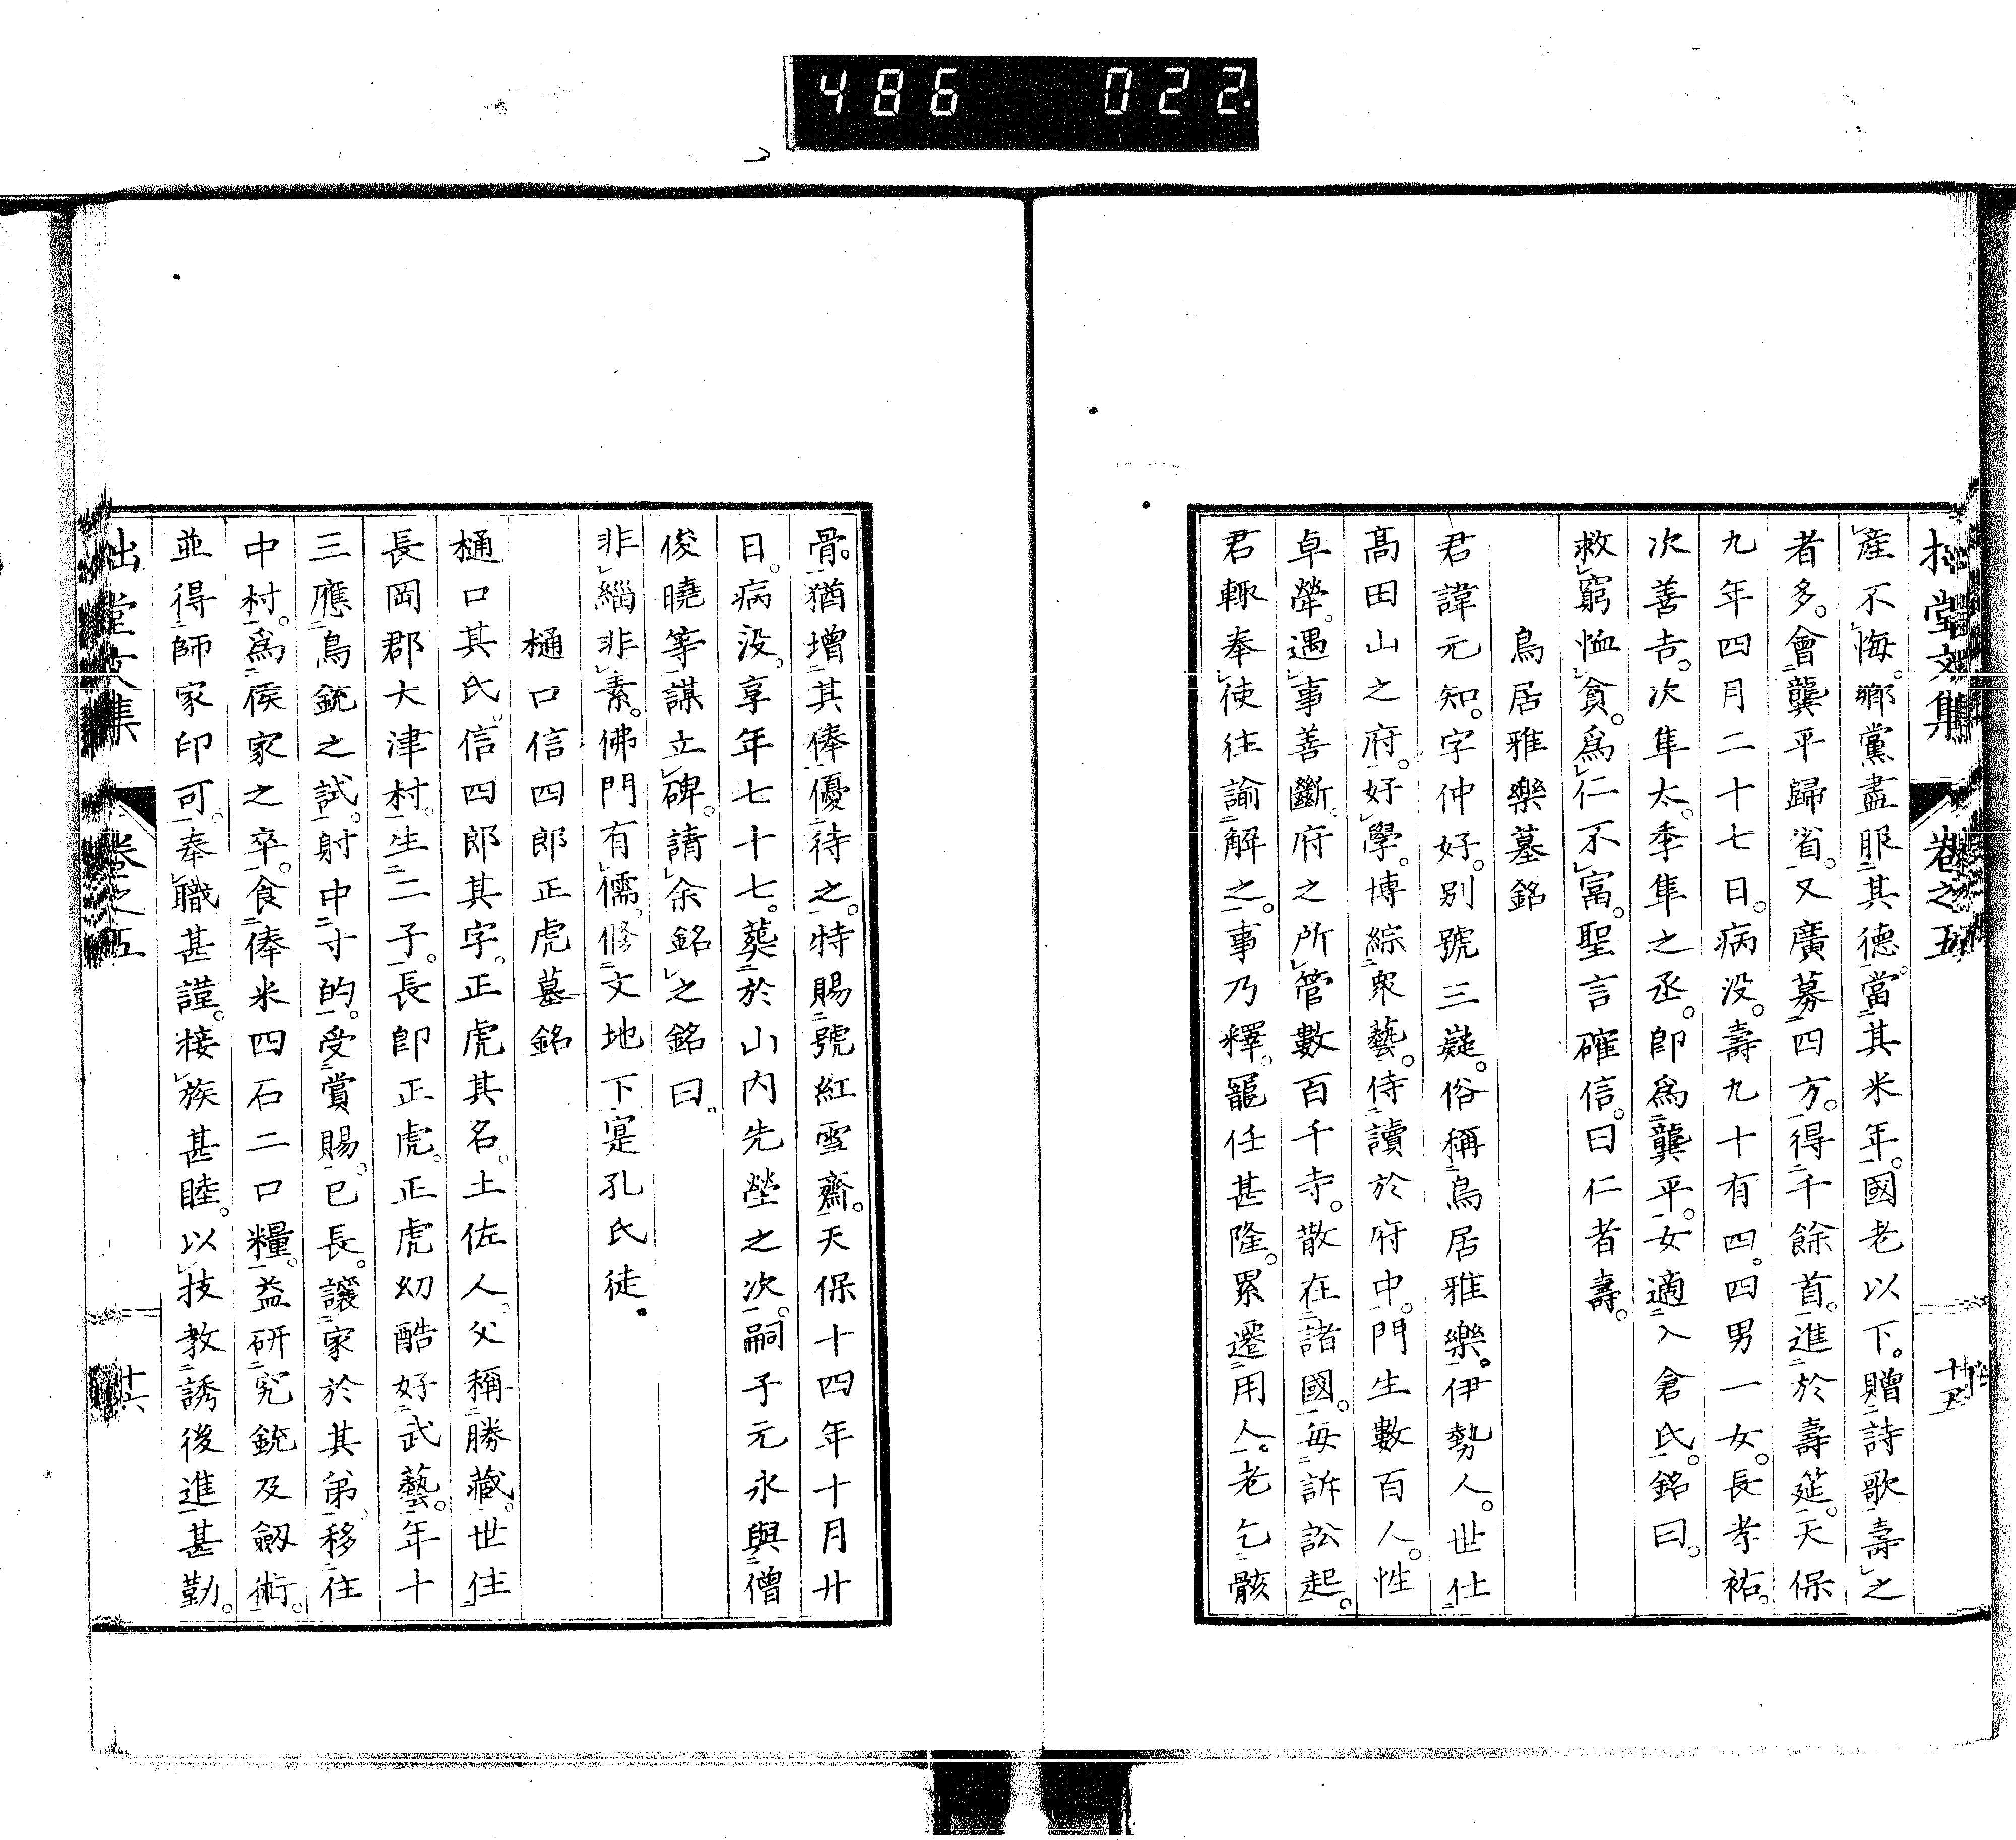 486 022
拙堂文集 卷之五 十五
產不悔。鄉黨盡服其德。當其米年。國老以下。贈詩歌壽之
者多。會龔平歸省。又廣募四方。得千餘首。進於壽筵。天保
九年四月二十七日。病没。壽九十有四。四男一女。長孝祐。
次善吉。次隼太。季隼之丞。卽為龔平。女適入倉氏。銘曰。
救窮恤貧。為仁不富。聖言確信。曰仁者壽。
鳥居雅樂墓銘
君諱元知。字仲好。別號三疑。俗稱鳥居雅樂。伊勢人。世仕
高田山之府。好學。博綜衆藝。侍讀於府中。門生數百人。性
卓犖。遇事善斷。府之所管數百千寺。散在諸國。每訴訟起。
君輒奉使往諭解之。事乃釋。寵任甚隆。累遷用人。老乞骸
骨。猶增其俸優待之。特賜號紅雪齋。天保十四年十月廿
日。病没。享年七十七。葬於山内先塋之次。嗣子元永與僧
俊曉等謀立碑。請余銘之銘曰。
非緇非素。佛門有儒。修文地下。寔孔氏徒。
樋口信四郎正虎墓銘
樋口其氏。信四郎其字。正虎其名。土佐人。父稱勝藏。世住
長岡郡大津村。生二子。長卽正虎。正虎幼酷好武藝。年十
三應鳥銃之試。射中寸的。受賞賜。已長。讓家於其弟。移住
中村。為侯家之卒。食俸米四石二口糧。益研究銃及劒術。
並得師家印可。奉職甚謹。接族甚睦。以技教誘後進甚勤。
拙堂文集 卷之五 十六